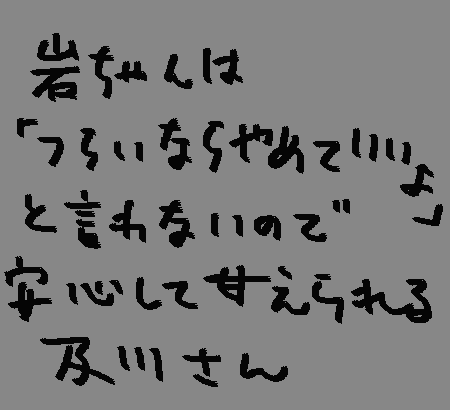 岩ちゃんは
「つらいならやめていいよ」
と言わないので
安心して甘えられる
及川さん